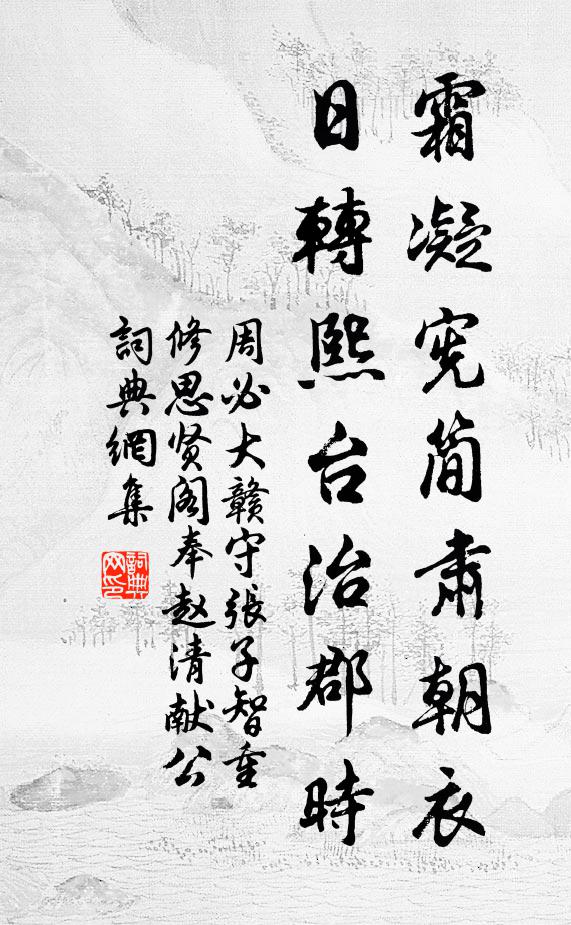 霜凝宪简肃朝衣
日轉熙台治郡時
周必大贛守張子智重
修思贤阁奉赵清献公
詞典網集
詞典网印